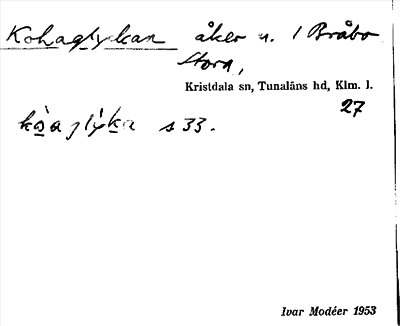 Kohaglyckan åker n. 1 Bråbo
Stora,
Kristdala sn, Tunaläns hd, Klm. l.
27
s 33.
Ivar Modéer 1953